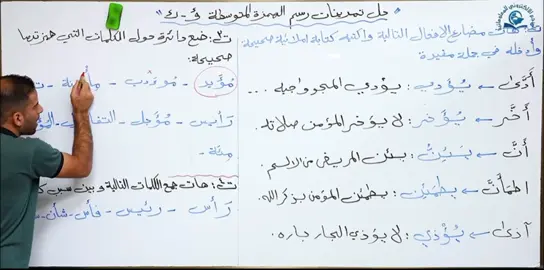 « حل تمرينات رسم الهمزة المتوسطة ؤ - ئ »
ت١: هات مضارع الأفعال التالية واكتبه كتابة إملائية صحيحة
وأدخله في جملة مفيدة.
أدّى ← يُؤدي : يؤدي المجد واجبه ...
أخّر ← يُؤخر : لا يؤخر المؤمن صلاته.
أنَّ ← يَئِنُّ : يئن المريض من الألم.
اطمأنَّ ← يطمئن : يطمئن المؤمن بذكر الله.
آذى ← يُؤْذي : لا يؤذي الجار جاره.
ت٢: ضع دائرة حول الكلمات التي همزتها
صحيحة:
مؤيد - مؤدب -
رَأيس - مؤجل -
مئة.
ت٣: هات جمع الكلمات التالية وبين سبب
رَأس - رئيس - فأس - شأن